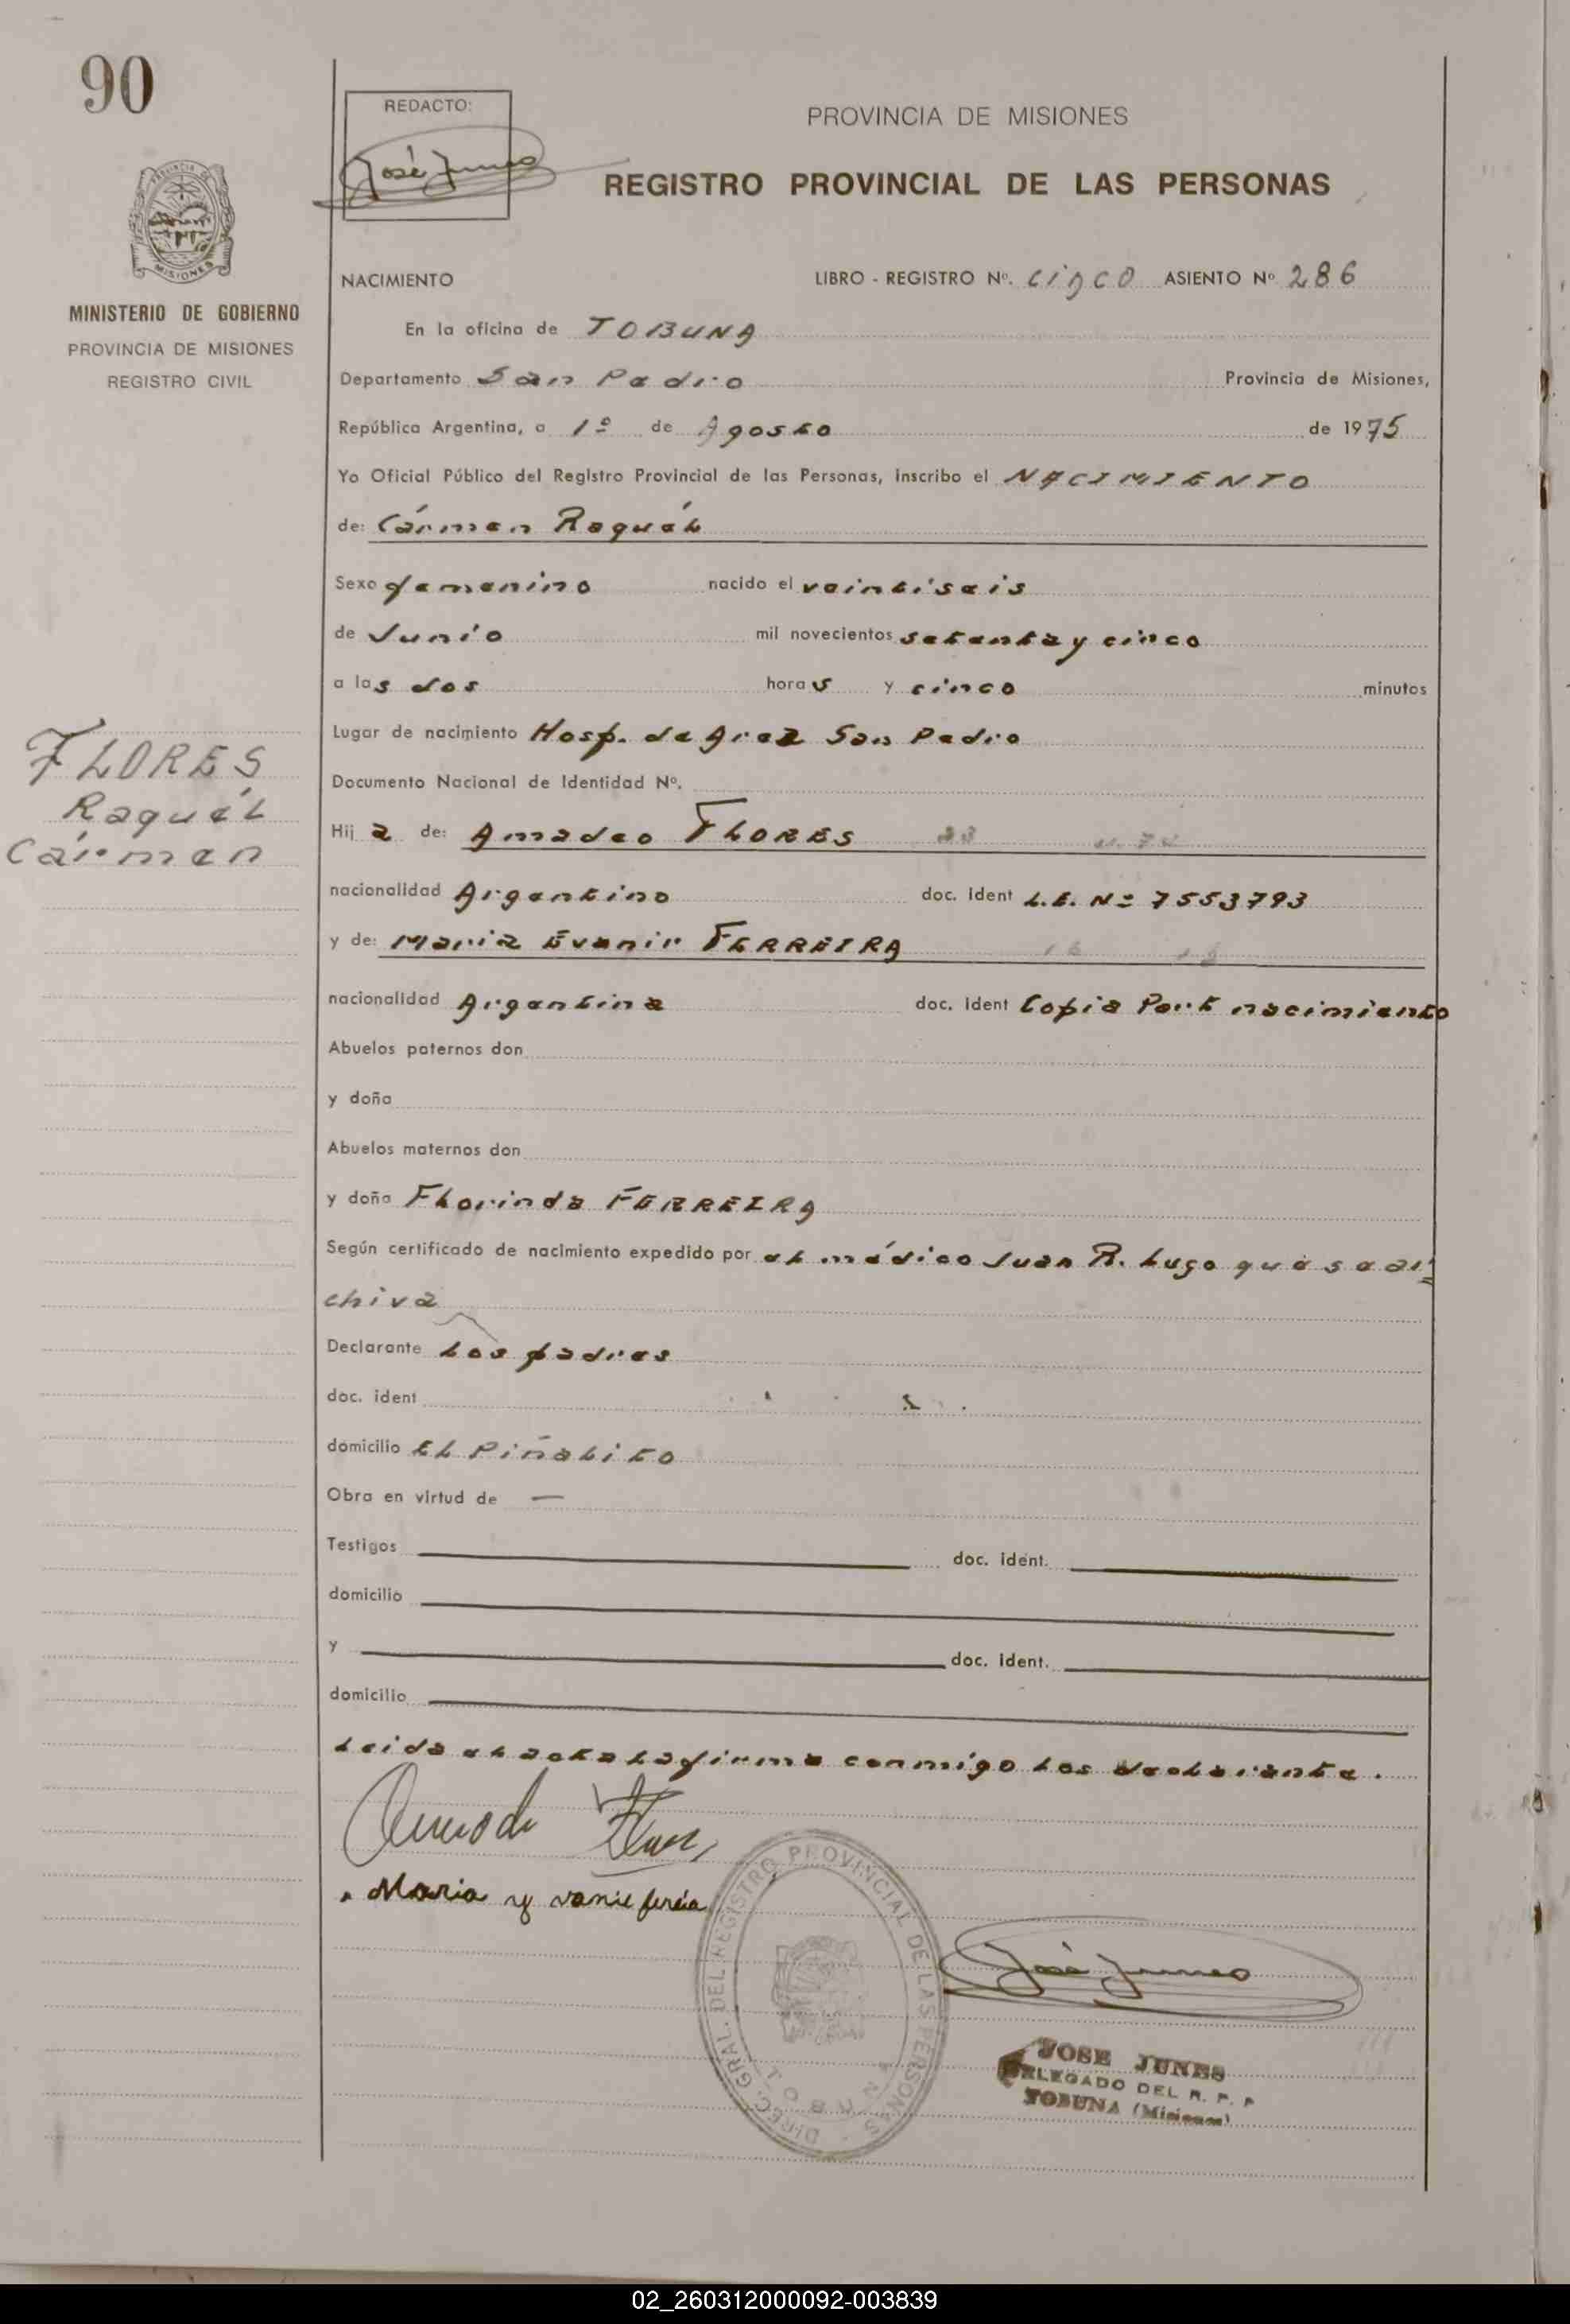 90
REDACTO:
José Junes
PROVINCIA DE MISIONES
REGISTRO PROVINCIAL DE LAS PERSONAS
MISIONES
MINISTERIO DE GOBIERNO
PROVINCIA DE MISIONES
REGISTRO CIVIL
NACIMIENTO LIBRO - REGISTRO Nº. cinco ASIENTO Nº 286
En la oficina de TOBUNA
Departamento San Pedro Provincia de Misiones,
República Argentina, a 1º de Agosto de 1975
Yo Oficial Público del Registro Provincial de las Personas, inscribo el NACIMIENTO
de: Cármen Raquél
Sexo femenino nacido el veintiseis
de Junio mil novecientos setenta y cinco
a las dos horas y cinco minutos
Lugar de nacimiento Hosp. de Area San Pedro
Documento Nacional de Identidad Nº.
FLORES
Raquél
Cármen
Hija de: Amadeo FLORES
nacionalidad Argentino doc. ident L.E. Nº 7553793
y de: Maria Evanir FERREIRA
nacionalidad Argentina doc. ident Copia Part nacimiento
Abuelos paternos don
y doña
Abuelos maternos don
y doña Florinda FERREIRA
Según certificado de nacimiento expedido por el médico Juan R. Lugo que se ar=
chiva
Declarante Los padres
doc. ident
domicilio El Piñalito
Obra en virtud de —
Testigos doc. ident.
domicilio
y doc. ident.
domicilio
Leida el acta la firma conmigo los declarante.
Maria
DIREC. GRAL. DEL REGISTRO PROVINCIAL DE LAS PERSONAS
TOBUNA
José Junes
JOSE JUNES
DELEGADO DEL R. P. P
TOBUNA (Misiones)
02_260312000092-003839